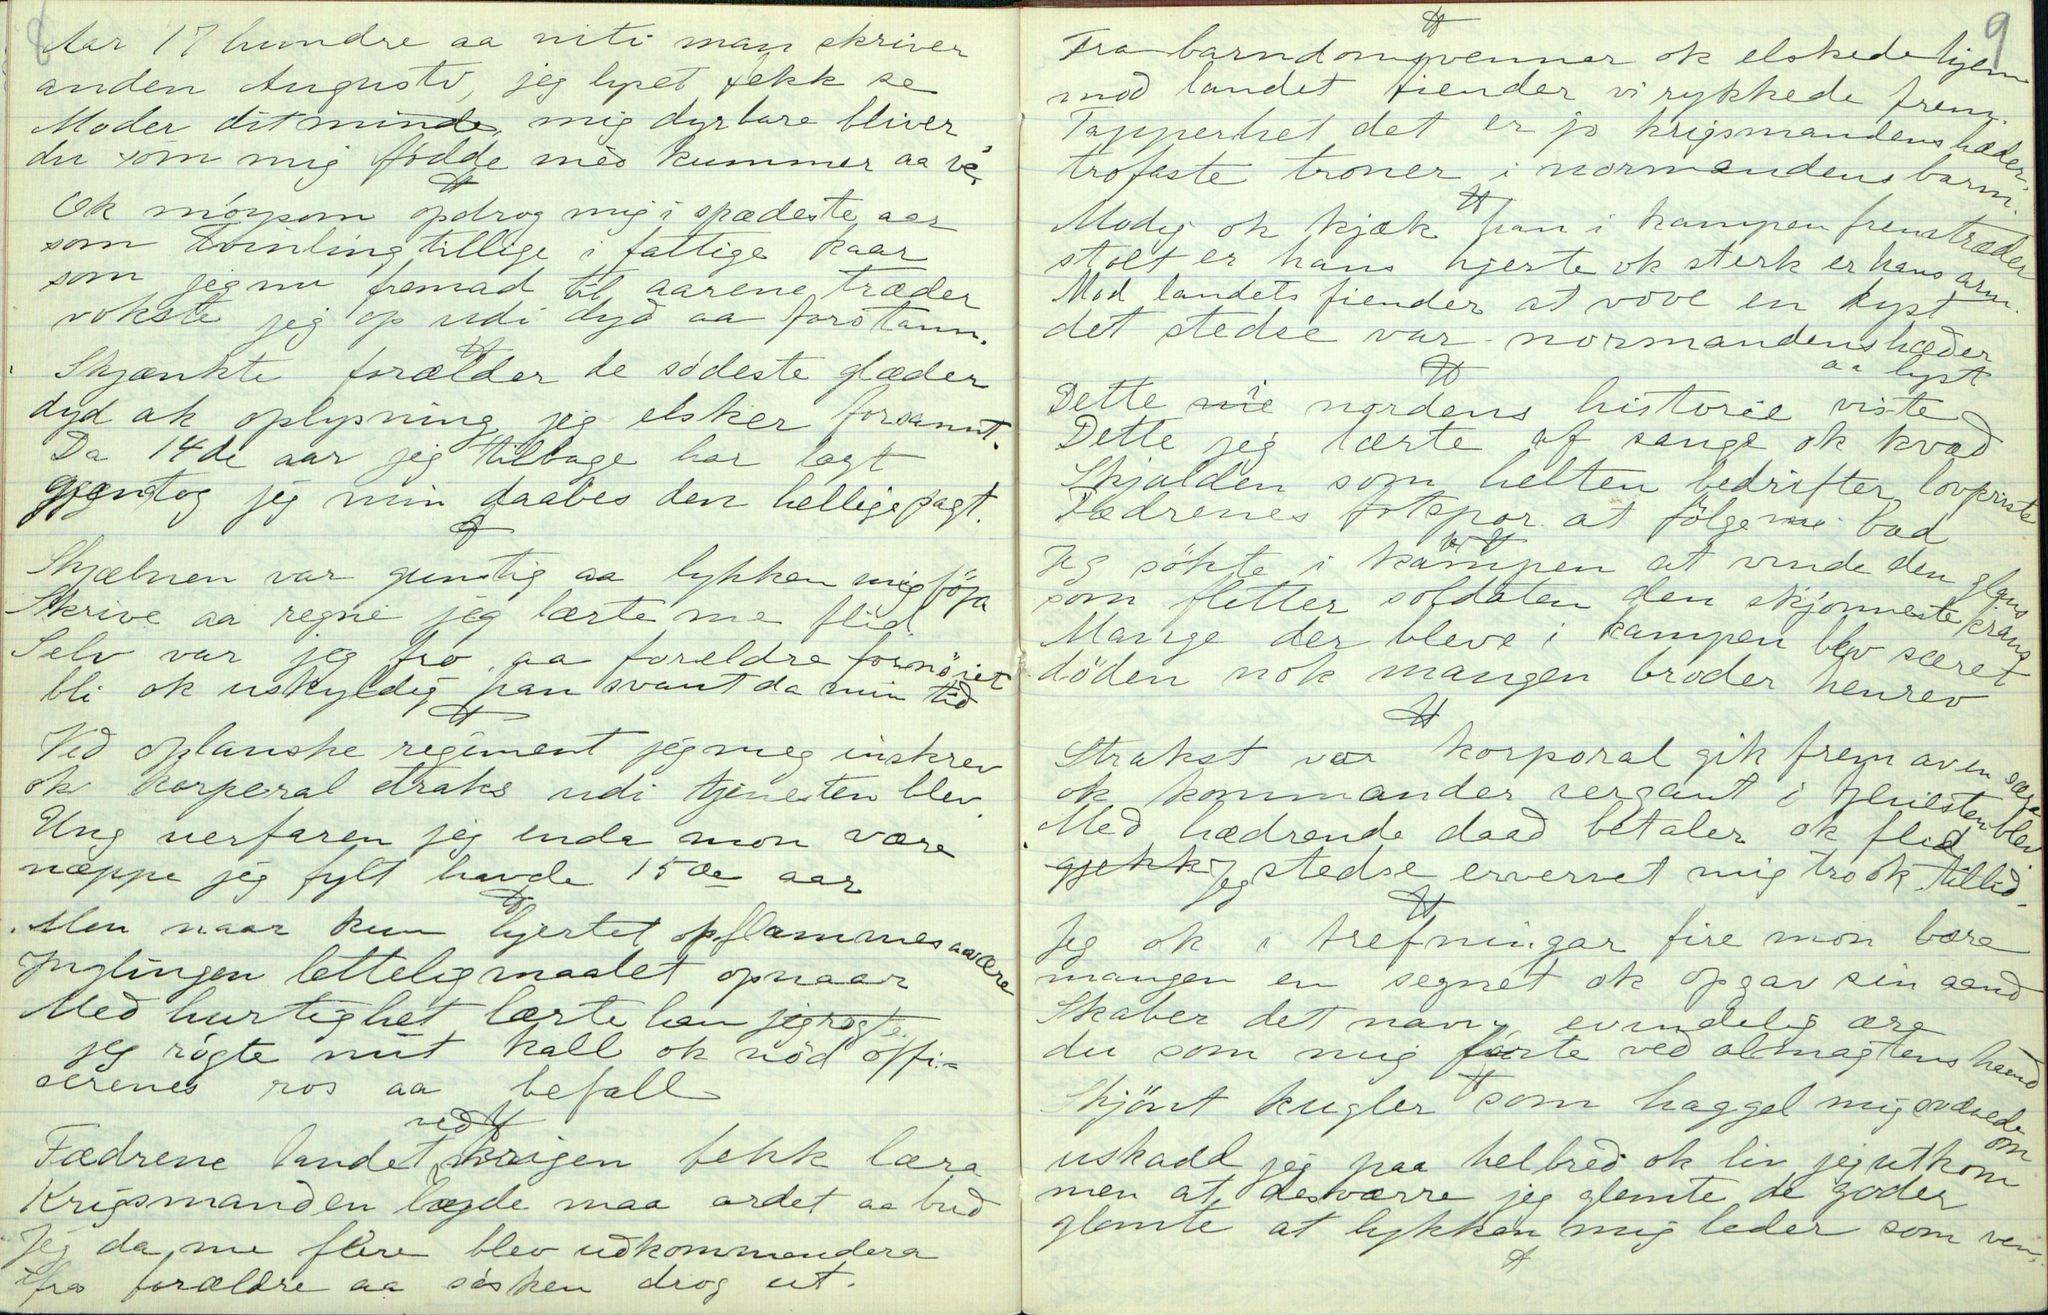 8
Aar 17 hundre aa niti man skriver
anden Augusti, jeg lyset fekk se
Moder dit minde, mig dyrbare bliver
du som mig fødde med kummer aa ve,
Ok móysom opdrog mig i spædeste aar
som tvinling tillige i fattige kaar
som jeg nu fremad til aarene træder
vokste jeg op udi dyd aa forstann.
Skjænkte forælder de sódeste glæder
dyd ok oplysning jeg elsker forsannt.
Da 14de aar jeg tilbage har lagt
gjentog jeg min daabes den hellige pagt.
Skjæbnen var gunstig aa lykken mig föga
Skrive aa regne jeg lærte me flid
Selv var jeg fro aa foreldre fornöiet
bli ok uskyldig han svant da min tid
Ved oplanske regiment jeg meg inskrev
ok korperal straks udi tjenesten blev
Ung uerfaren jeg enda mon være
næppe jeg fylt havde 15de aar
Men naar kun hjertet opflammes aa ære
Ynglingen lettelig maalet opnaar
Med hurtighet lærte han jeg røgte
jeg rógte mit kall ok nód offi-
serenes ros aa befall
ved
Fædrene landet krigen fekk læra
Krigsmanden lægde maa ordet aa bud
Jeg da me flere blev udkommendera
fra forældre aa sósken drog ut.
9
Fra barndomsvenner ok elskede hjem
mod landet fiender vi rykkede frem.
Tapperhet det er jo krigsmandens hæder,
trofaste troner i normandens barm.
Modig ok kjæk han i kampen fremtræder
stolt er hans hjerte ok sterk er hans arm.
Mod landets fiender at vove en dyst
det stedse var normandens hæder
aa lyst
Dette nie i nordens historie viste
Dette jeg lærte af sange ok kvad
Skjalden som helten bedrifter lovpriste
Fædrenes fotspor at fölge me bad
Jeg sökte i kampen at vinde den glans
som fletter soldaten den skjonneste krans
Mange der bleve i kampen blev særet
döden nok mangen broder henrev
Strakst var korporal gik frem aven særa
ok kommander sergant i hvilsten blev
Med hædrende daad betaler ok flid
gjekk jeg stedse ervervet mig tro ok tillid.
Jeg ok i trefningar fire mon være
mangen en segnet ok opgav sin aand
Skaber det navn evindelig ære
du som mig førte ved almagtens haand
Skjönt kugler som haggel mig svævede
om
uskadd jeg paa helbred ok liv jeg utkom
men at desværre jeg glemte de goder
glemte at lykken mig leder som ven.